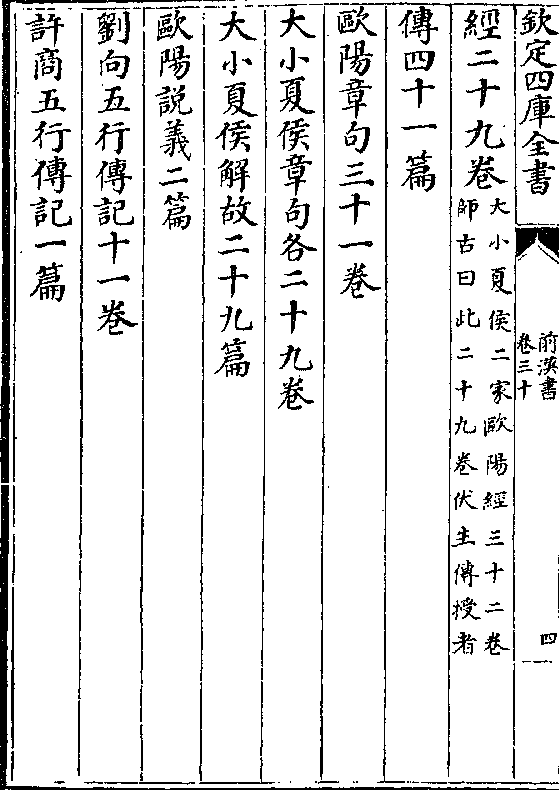 欽定四庫全書
前漢書
卷三十
四
經二十九卷大小夏侯二家歐陽經三十二卷
師古曰此二十九卷伏生傳授者
傳四十一篇
歐陽章句三十一卷
大小夏侯章句各二十九卷
大小夏侯解故二十九篇
歐陽説義二篇
劉向五行傳記十一卷
許商五行傳記一篇